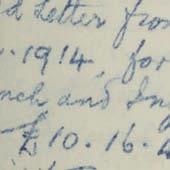 d Letter from
. 1914, for
nch and In
£10. 16.